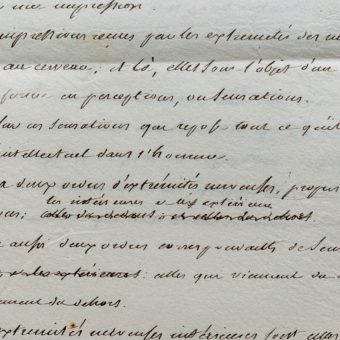 une impression.
impressions reçues par les extremités des ne
au cerveau; et là, elles sont l'objet d'un
en perceptions, ou sensations.
sur ces sensations que repose tout ce qu'il
intellectuel dans l'homme.
a deux ordres d'extrémités nerveuses, propres
les intérieures & extérieure
celles du dedans & celles du dehors.
aussi deux ordres correspondants de sen
& les extérieures: celles que viennent du
du dehors.
extremités nerveuses intérieures sont elles